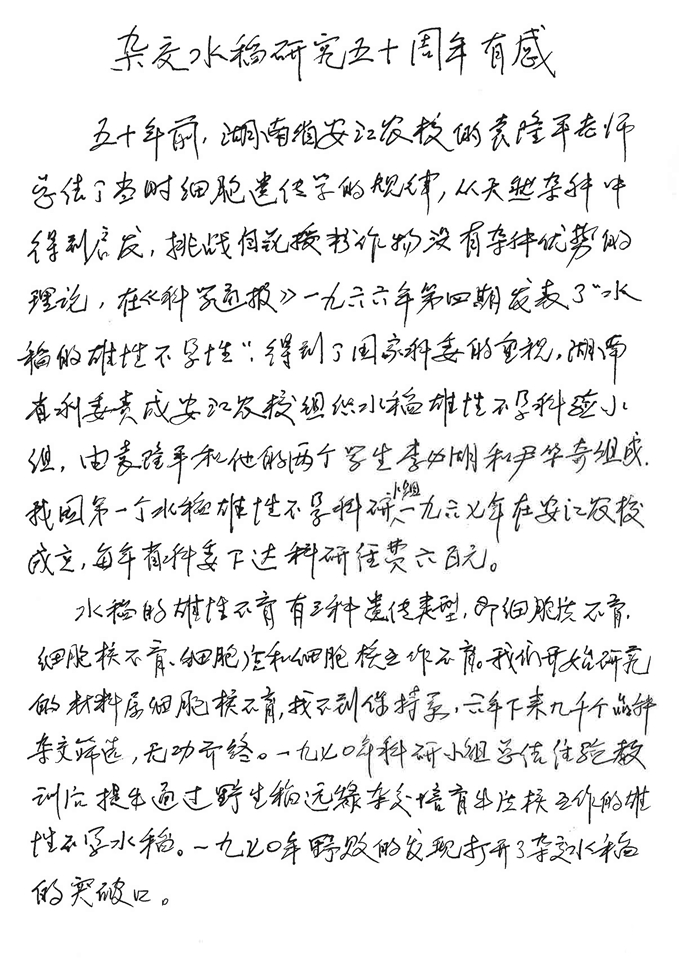 杂交水稻研究五十周年有感
五十年前，湖南省安江农校的袁隆平老师
总结了当时细胞遗传学的规律，从天然杂种中
得到启发，挑战自花授粉作物没有杂种优势的
理论，在《科学通报》一九六六年第四期发表了“水
稻的雄性不孕性”，得到了国家科委的重视，湖南
省科委责成安江农校组织水稻雄性不孕科验小
组，由袁隆平和他的两个学生李必湖和尹华奇组成．
我国第一个水稻雄性不孕科研小组一九六七年在安江农校
成立，每年省科委下达科研经费六百元。
水稻的雄性不育有三种遗传类型，即细胞质不育．
细胞核不育、细胞质和细胞核互作不育。我们开始研究
的材料属细胞核不育，找不到保持系，六年下来九千个品种
杂交筛选，无功而终。一九七〇年科研小组总结经验教
训后提出通过野生稻远缘杂交培育出质核互作的雄
性不孕水稻。一九七〇年野败的发现打开了杂交水稻
的突破口。